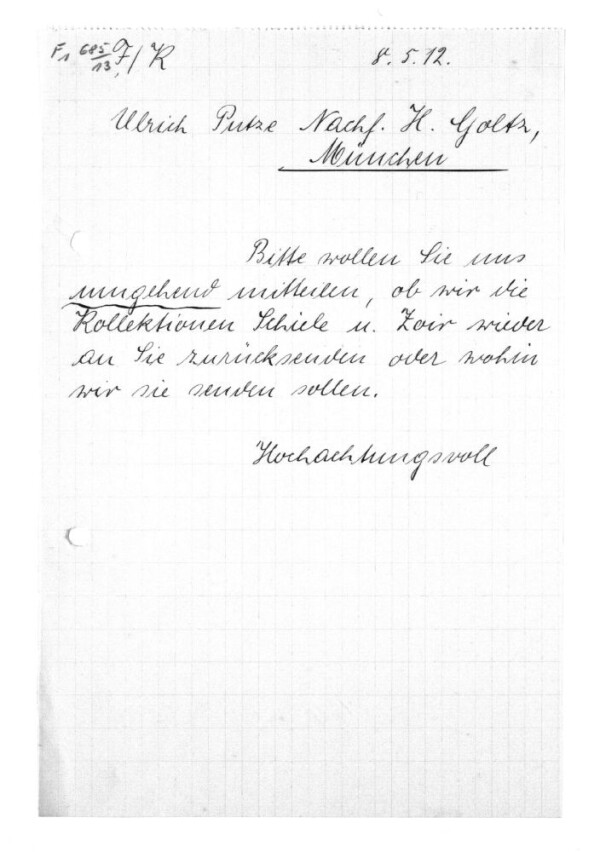 F1 685/13 F/K 8.5.12.
Ulrich Putze Nachf. H. Goltz,
München
Bitte wollen Sie uns
umgehend mitteilen, ob wir die
Kollektionen Schiele u. Zoir wieder
an Sie zurücksenden oder wohin
wir sie senden sollen.
Hochachtungsvoll